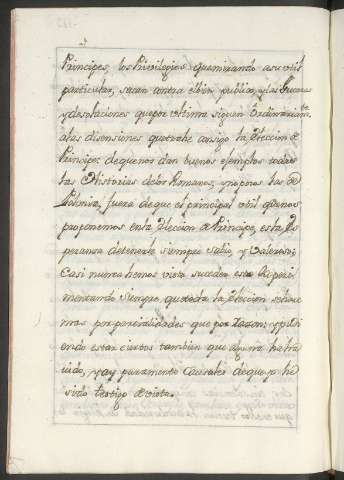 Principes, los Privilegios que mirando a su util
particular, sacan contra el bien publico, y las Guerras
y desolaciones que por ultimo siguen Ordinariamte
a las disensiones que trahe consigo la Eleccion de
Principe: de que nos dan buenos exemplos todas
las Historias de los Romanos, y no pocos las de
Polonia, fuera de que el principal util que nos
proponemos en la Eleccion de Principe, esta Es
peranza de tenerle siempre sabio, y Valeroso,
Casi nunca hemos visto suceder esto Experi
mentando siempre que toda la Eleccion se hace
mas por parcialidades que por Razon; y pudi
endo estar ciertos tambien que alguna ha havi
ido, y ay puramente Casuales de que yo he
sido testigo de vista.